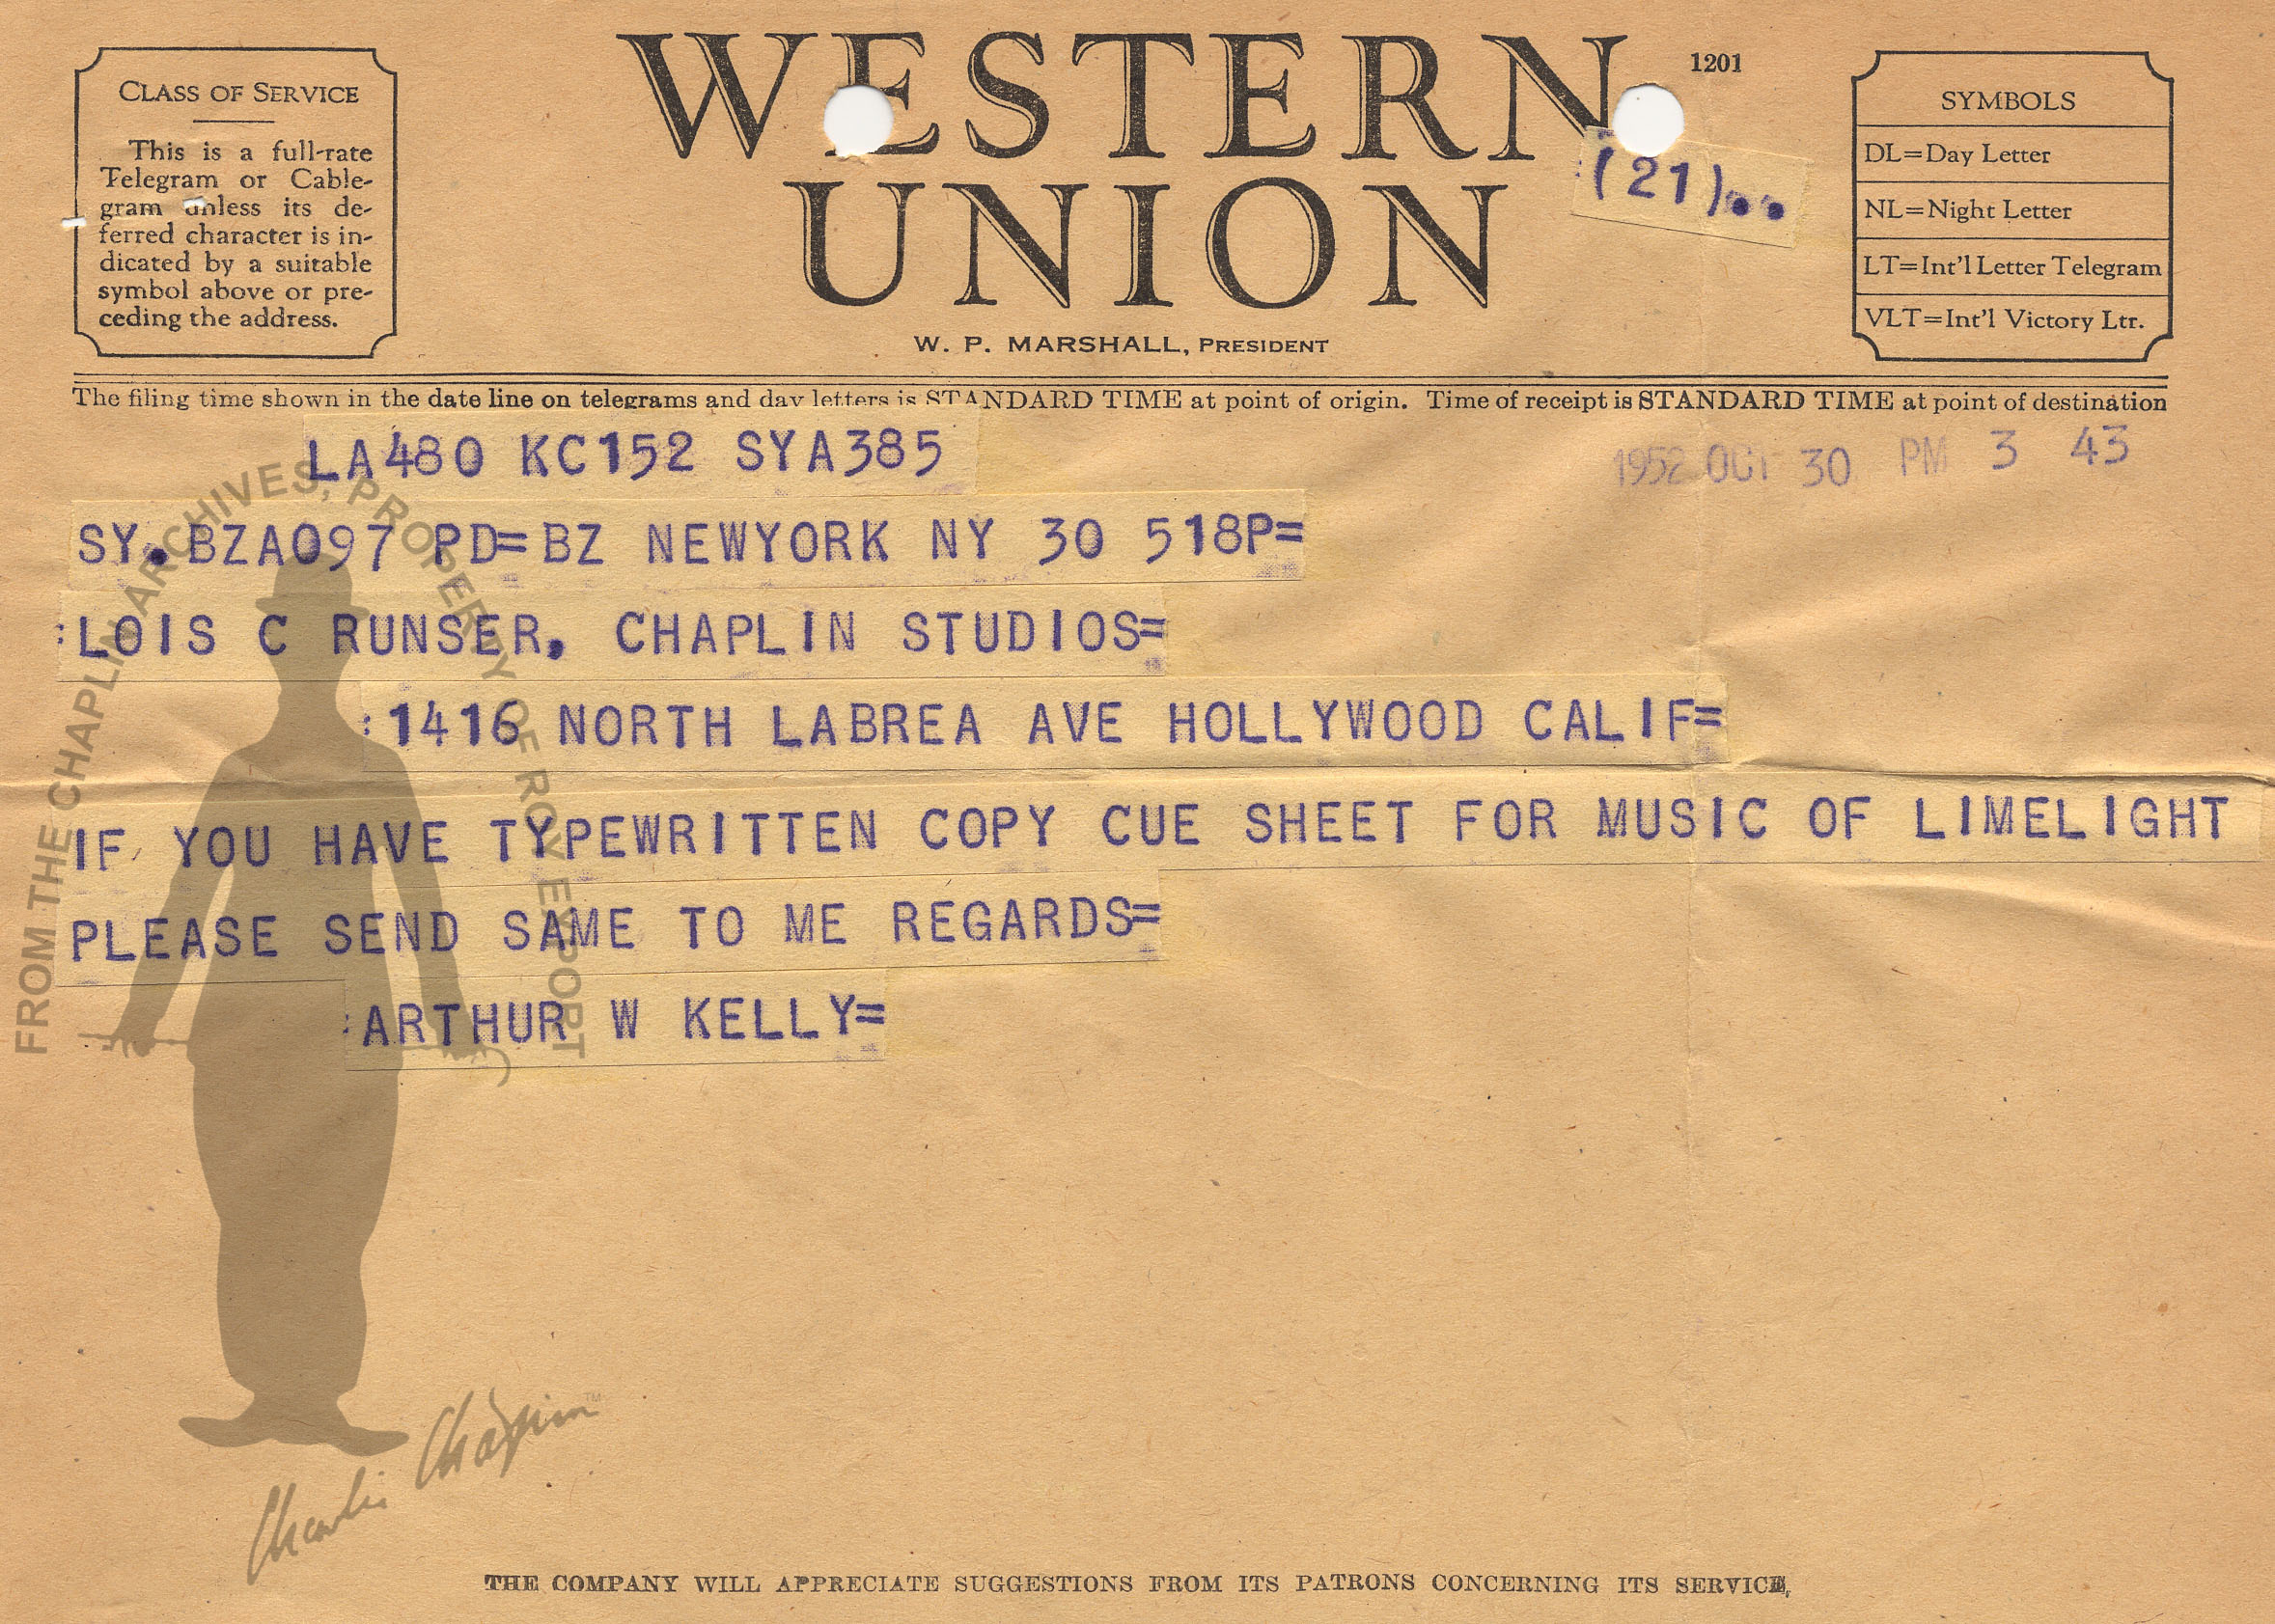 WESTERN
UNION
1201
(21)..
W. P. MARSHALL, PRESIDENT
CLASS OF SERVICE
This is a full-rate
Telegram or Cable-
gram unless its de-
ferred character is in-
dicated by a suitable
symbol above or pre-
ceding the address.
SYMBOLS
DL=Day Letter
NL=Night Letter
LT=Int'l Letter Telegram
VLT=Int'l Victory Ltr.
The filing time shown in the date line on telegrams and day letters is STANDARD TIME at point of origin. Time of receipt is STANDARD TIME at point of destination
LA480 KC152 SYA385
1952 OCT 30 PM 3 43
SY.BZA097 PD=BZ NEWYORK NY 30 518P=
:LOIS C RUNSER, CHAPLIN STUDIOS=
:1416 NORTH LABREA AVE HOLLYWOOD CALIF=
IF YOU HAVE TYPEWRITTEN COPY CUE SHEET FOR MUSIC OF LIMELIGHT
PLEASE SEND SAME TO ME REGARDS=
:ARTHUR W KELLY=
FROM THE CHAPLIN ARCHIVES, PROPERTY OF ROY EXPORT
Charlie Chaplin™
THE COMPANY WILL APPRECIATE SUGGESTIONS FROM ITS PATRONS CONCERNING ITS SERVICE